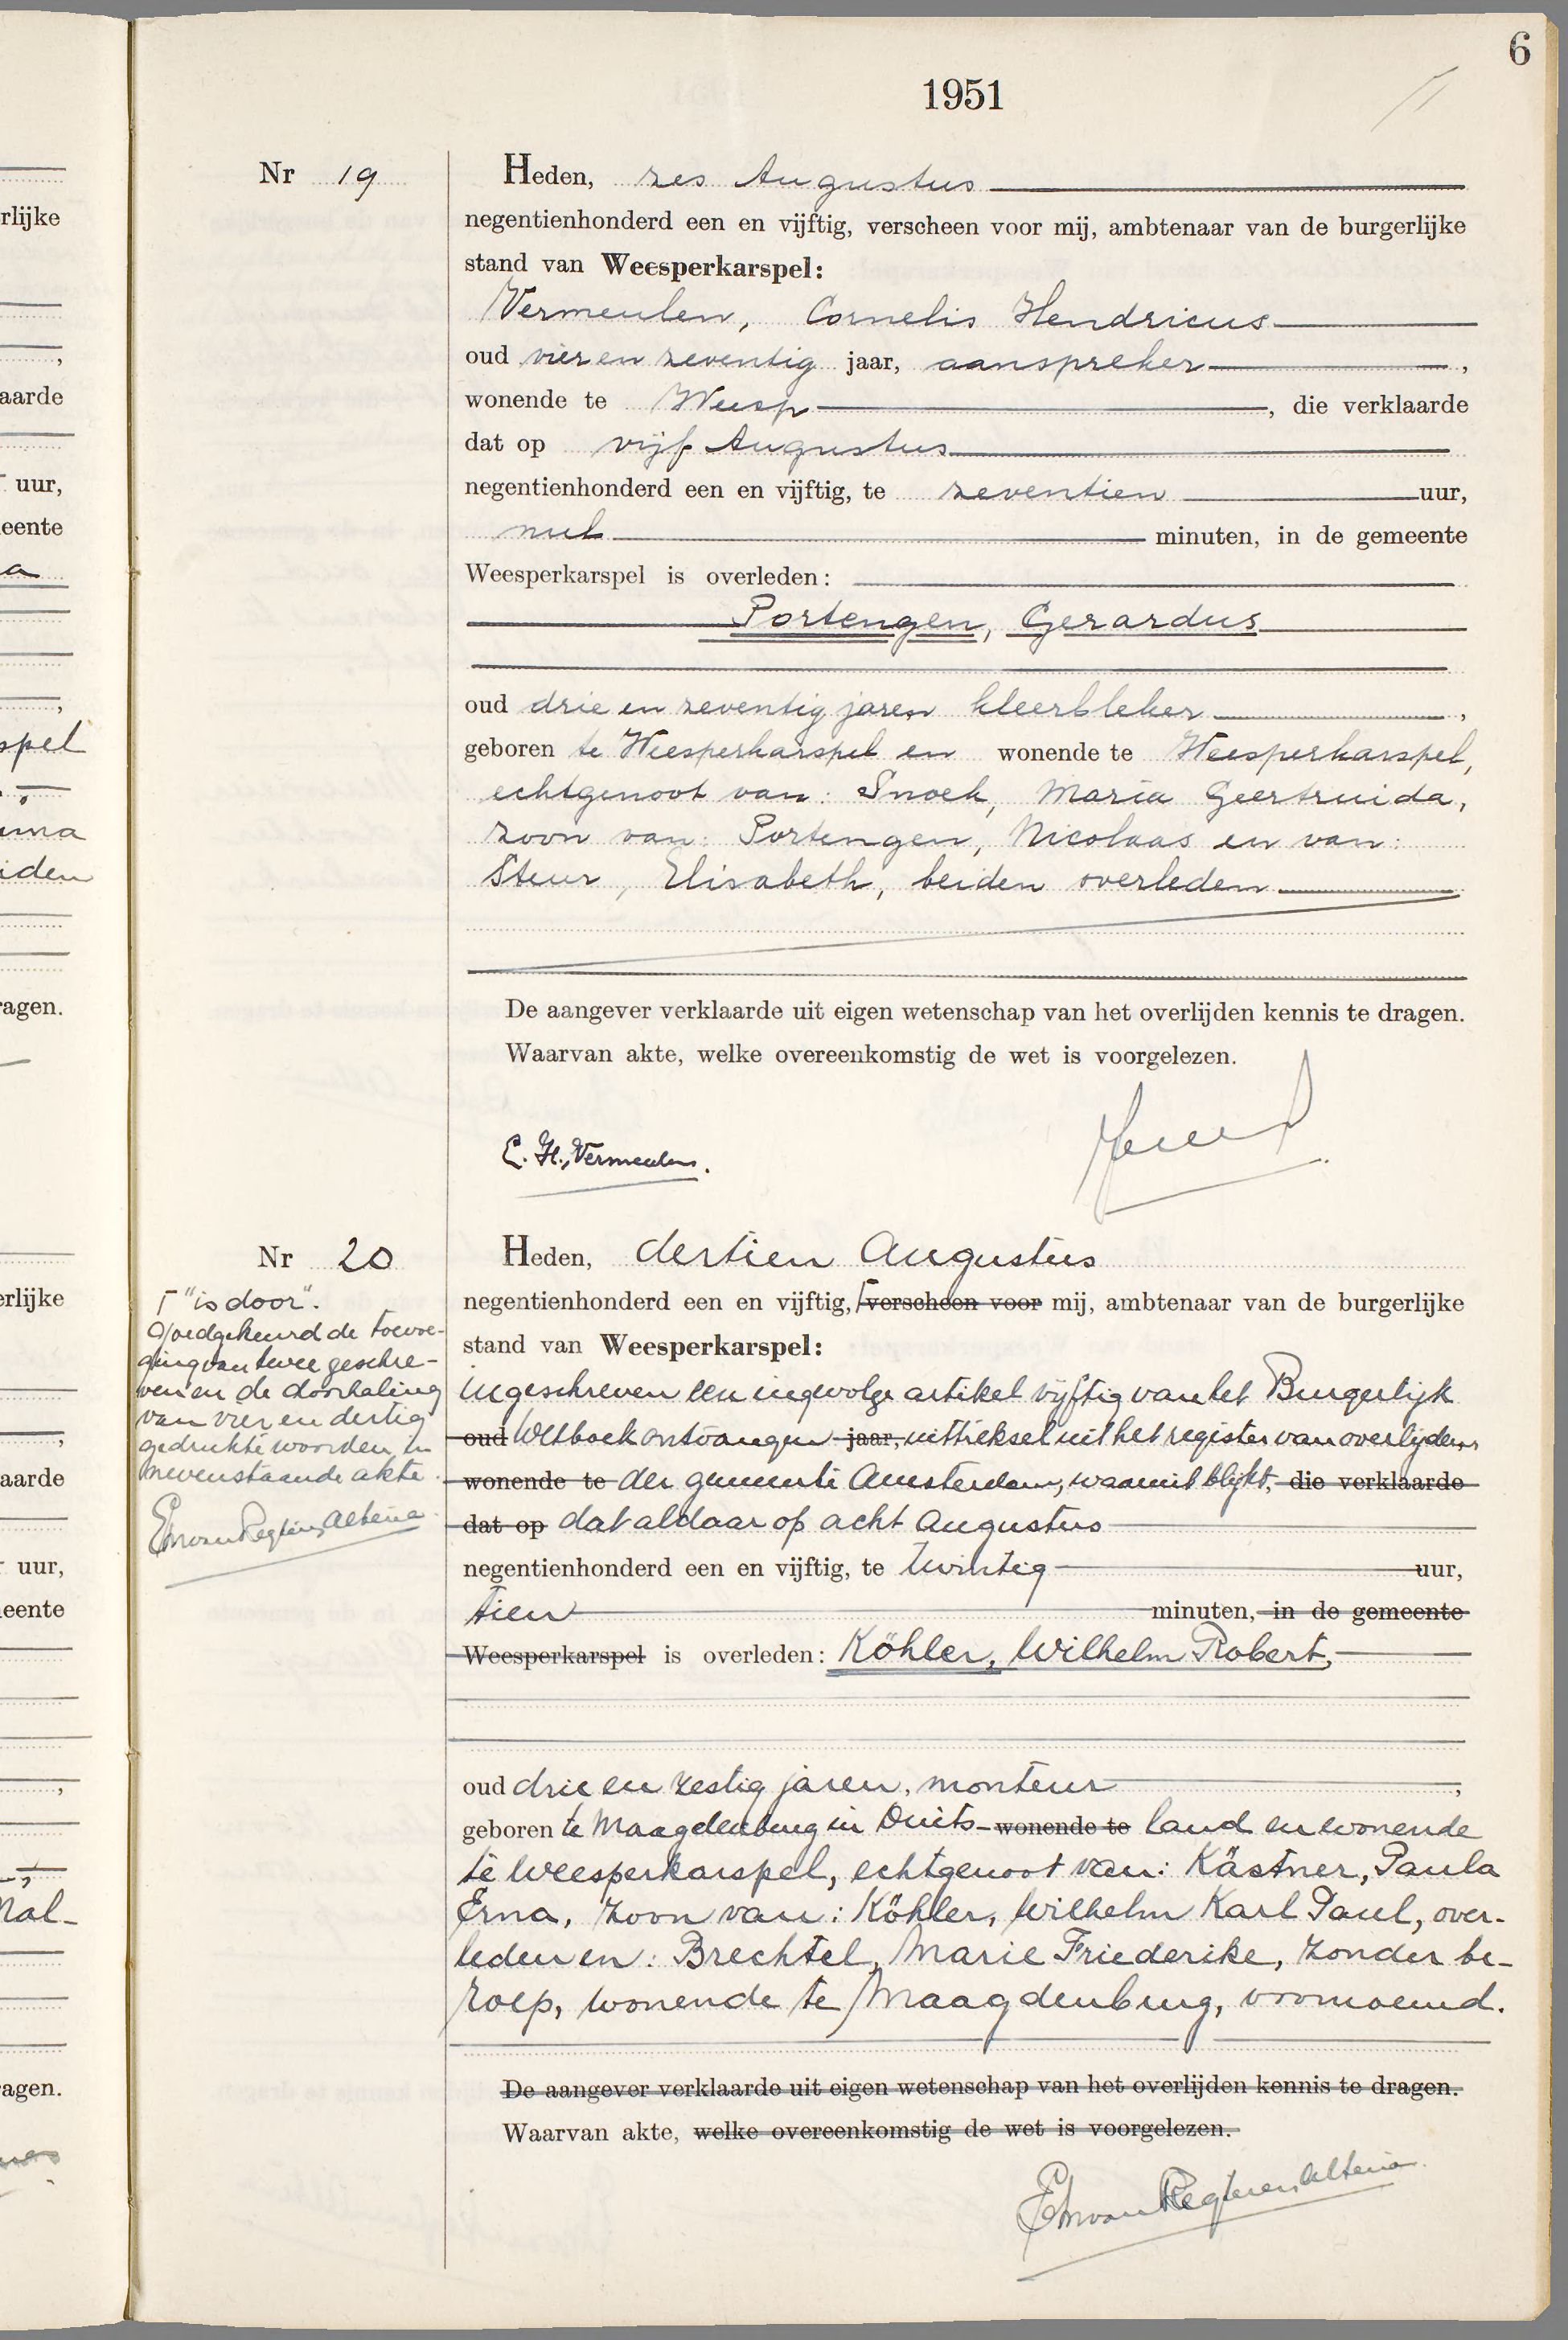 6
1951
Nr 19
Heden, zes Augustus
negentienhonderd een en vijftig, verscheen voor mij, ambtenaar van de burgerlijke
stand van Weesperkarspel:
Vermeulen, Cornelis Hendricus
oud vier en zeventig jaar, aanspreker,
wonende te Weesp, die verklaarde
dat op vijf Augustus
negentienhonderd een en vijftig, te zeventien uur,
nul minuten, in de gemeente
Weesperkarspel is overleden:
Portengen, Gerardus
oud drie en zeventig jaren kleerbleker,
geboren te Weesperkarspel en wonende te Weesperkarspel,
echtgenoot van: Snoek, Maria Geertruida,
zoon van: Portengen, Nicolaas en van:
Steur, Elisabeth, beiden overleden
De aangever verklaarde uit eigen wetenschap van het overlijden kennis te dragen.
Waarvan akte, welke overeenkomstig de wet is voorgelezen.
C. H. Vermeulen.
Nr 20
"is door".
Goedgekeurd de toevoe-
ging van twee geschre-
ven en de doorhaling
van vier en dertig
gedrukte woorden in
nevenstaande akte.
EM van Regteren Altena
Heden, dertien Augustus
negentienhonderd een en vijftig, verscheen voor mij, ambtenaar van de burgerlijke
stand van Weesperkarspel:
ingeschreven een ingevolge artikel vijftig van het Burgerlijk
oud Wetboek ontvangen jaar, uittreksel uit het register van overlijden
wonende te der gemeente Amsterdam, waaruit blijkt, die verklaarde
dat op dat aldaar op acht Augustus
negentienhonderd een en vijftig, te twintig uur,
tien minuten, in de gemeente
Weesperkarspel is overleden: Köhler, Wilhelm Robert,
oud drie en zestig jaren, monteur,
geboren te Maagdenburg in Duits- wonende te land en wonende
te Weesperkarspel, echtgenoot van: Kästner, Paula
Erna, zoon van: Köhler, Wilhelm Karl Paul, over-
leden en: Brechtel, Marie Friederike, zonder be-
roep, wonende te Maagdenburg, voornoemd.
De aangever verklaarde uit eigen wetenschap van het overlijden kennis te dragen.
Waarvan akte, welke overeenkomstig de wet is voorgelezen.
EM van Regteren Altena